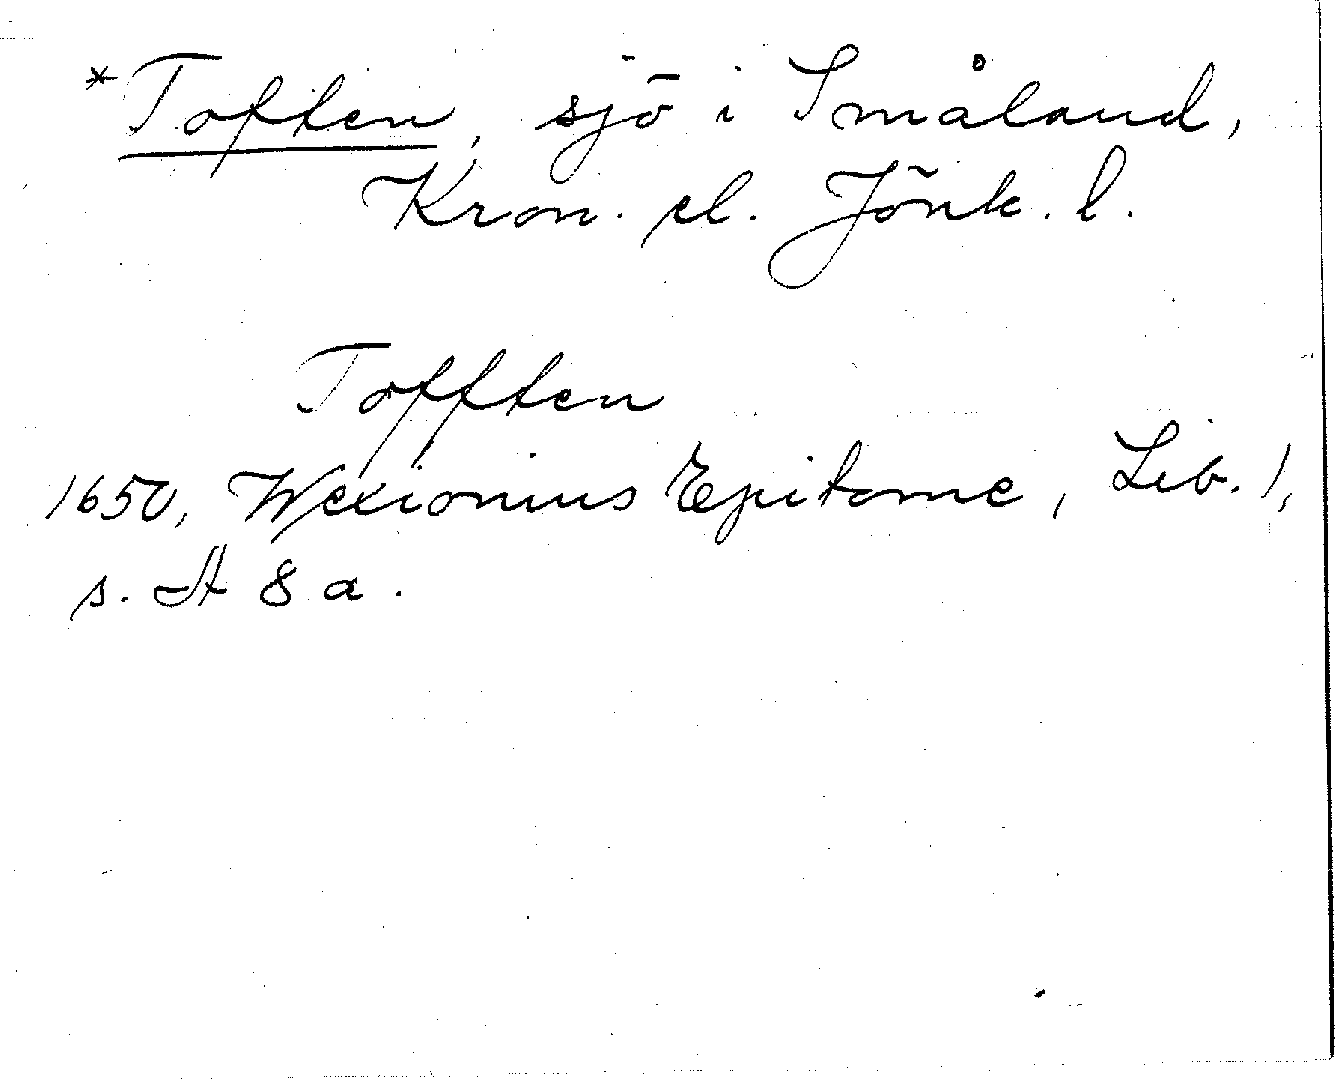 *Toften, sjö i Småland,
Kron. el. Jönk. l.
Tofften
1650, Wexionius Epitome, Lib. 1,
s. A 8 a.